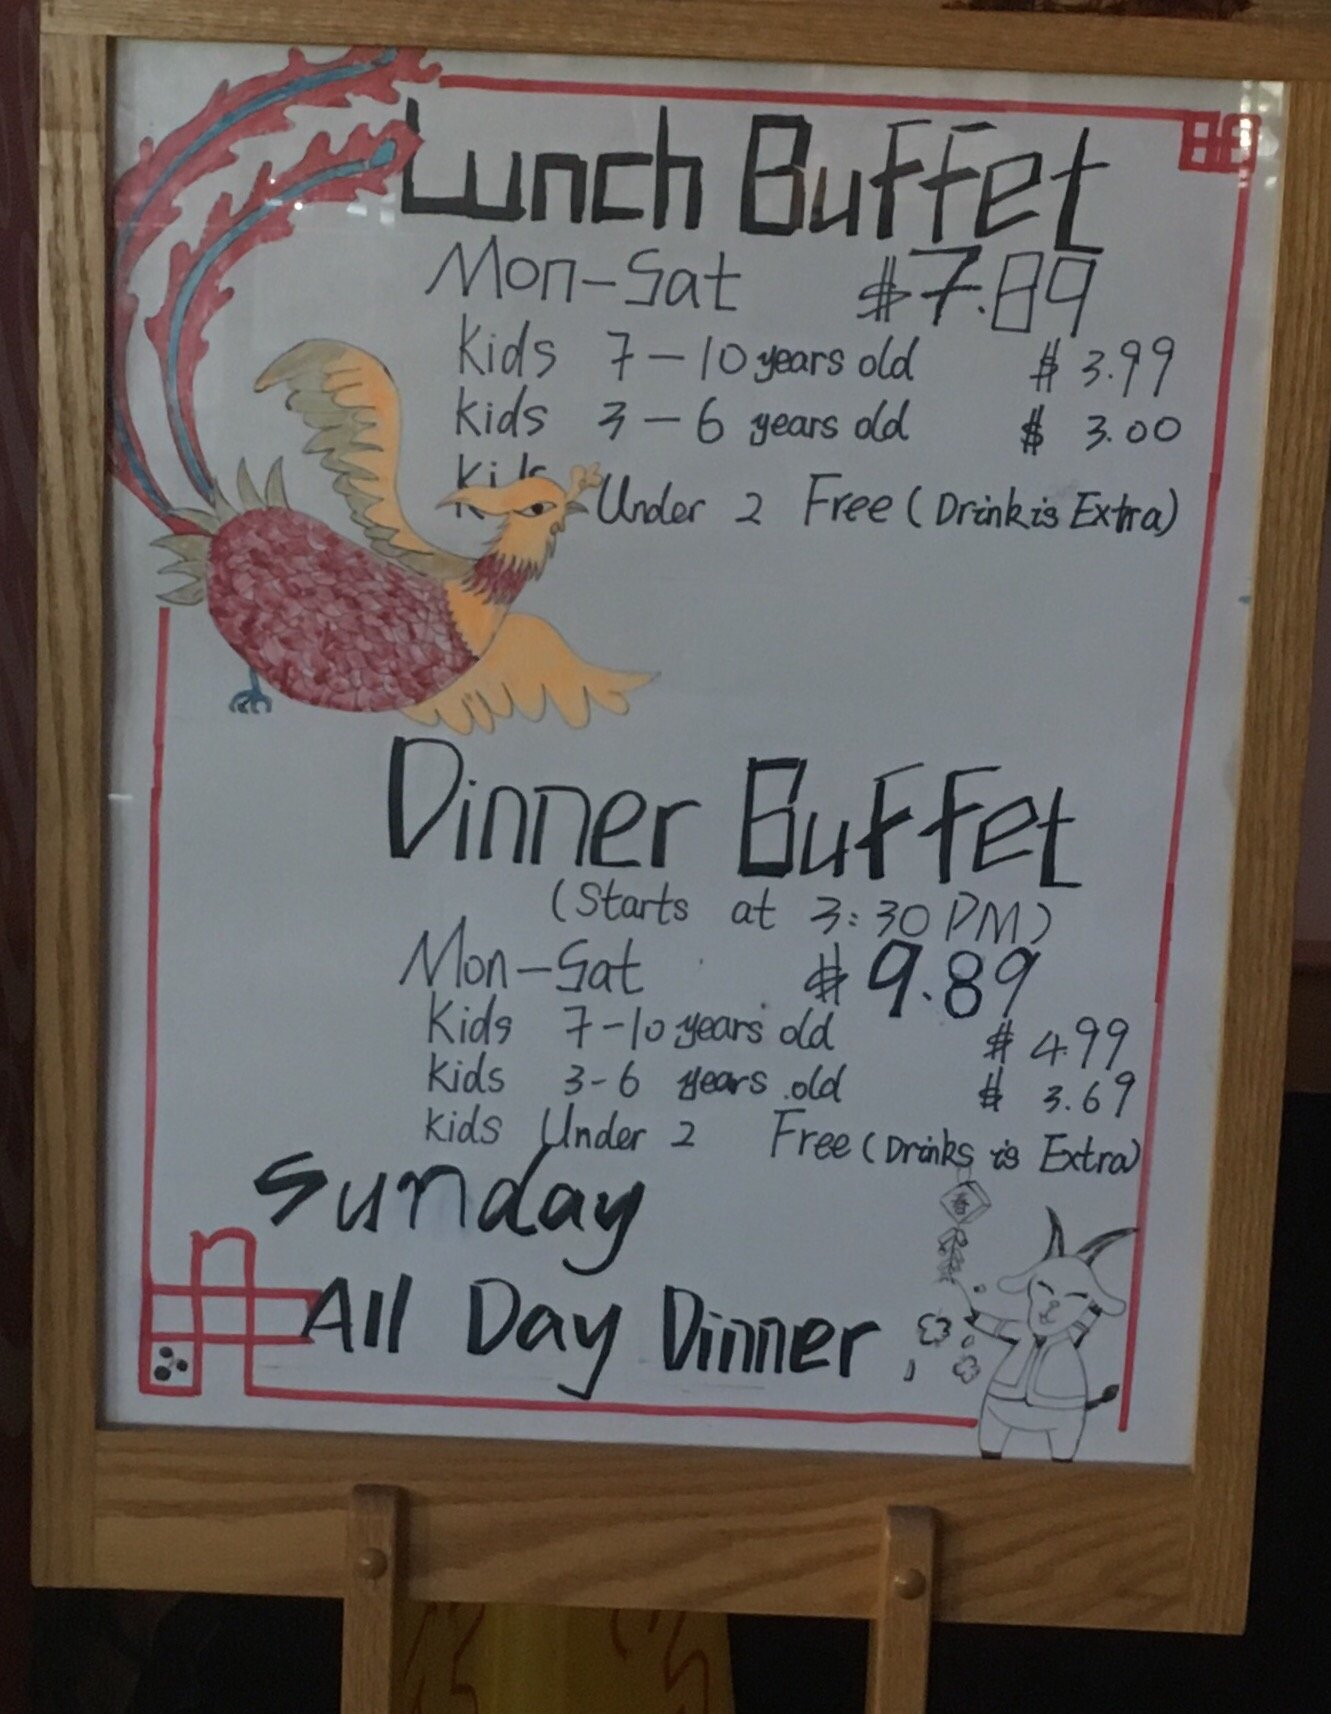 Lunch Buffet
Mon-Sat $7.89
Kids 7-10 years old $3.99
Kids 3-6 years old $3.00
Kids Under 2 Free (Drink is Extra)
Dinner Buffet
(Starts at 3:30 PM)
Mon-Sat $9.89
Kids 7-10 years old $4.99
Kids 3-6 years old $3.69
Kids Under 2 Free (Drinks is Extra)
Sunday
春
All Day Dinner